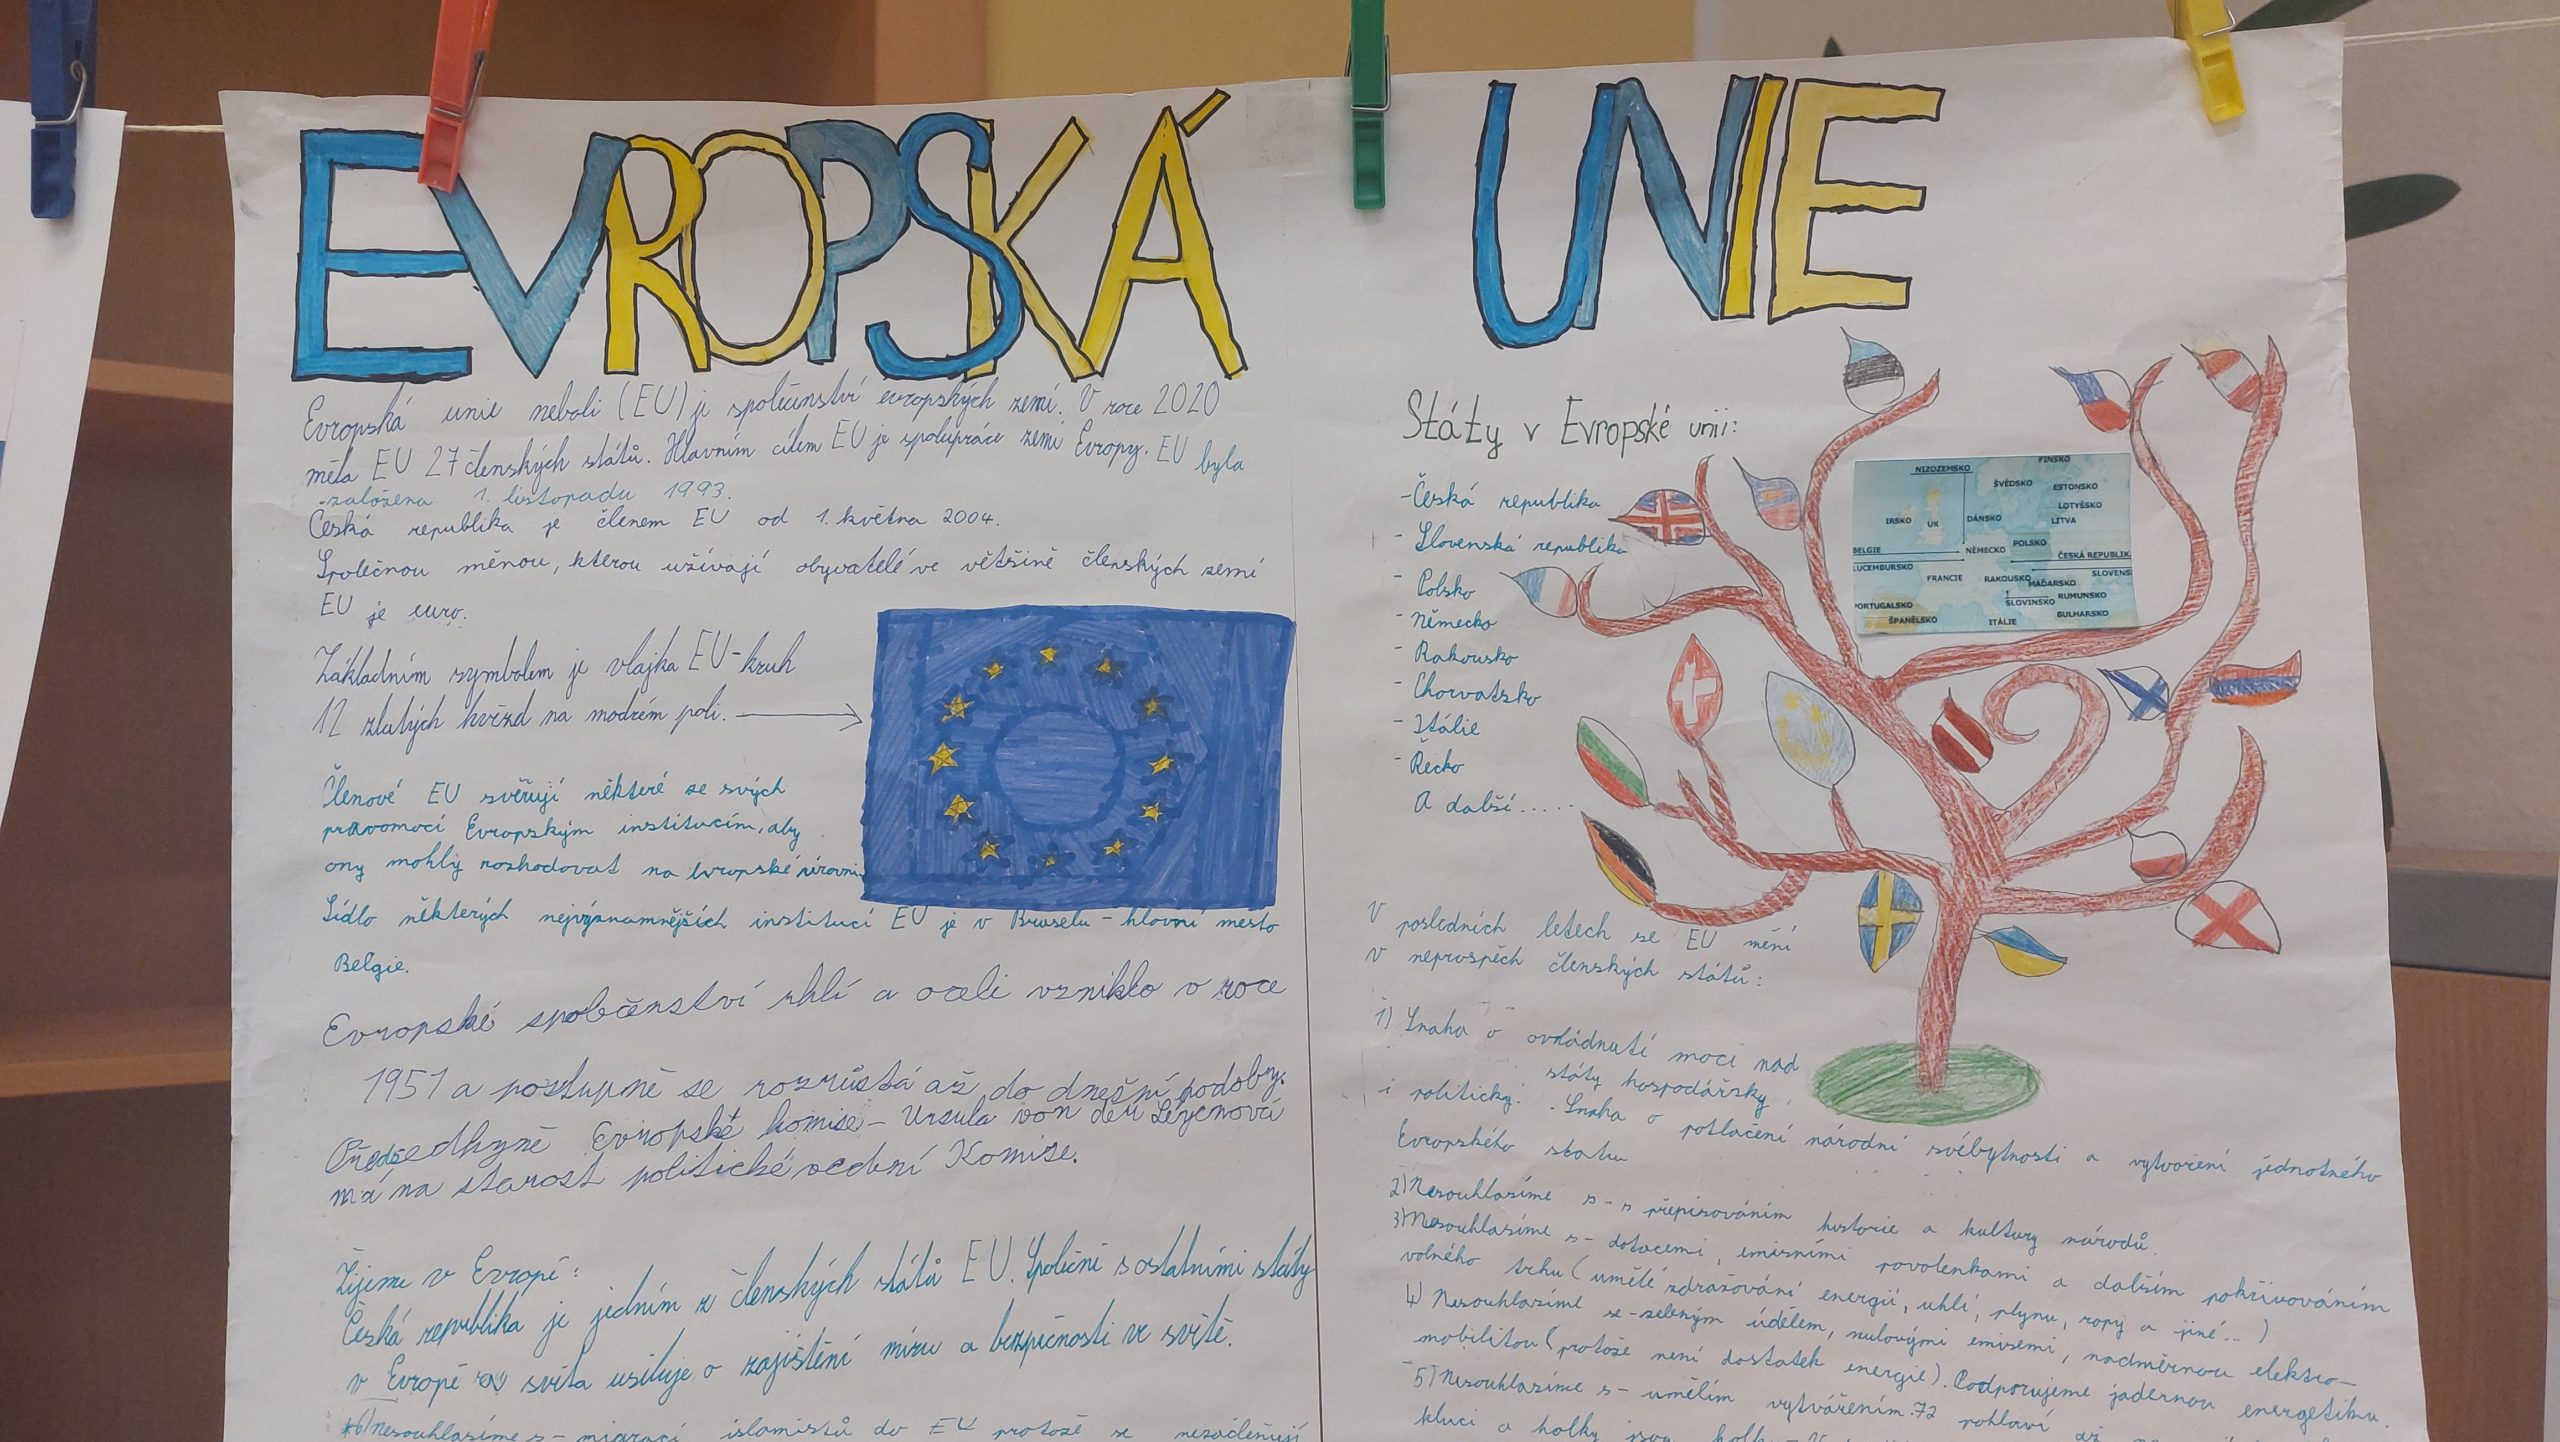 EVROPSKÁ UNIE
Evropská unie neboli (EU) je společenství evropských zemí. V roce 2020
měla EU 27 členských států. Hlavním cílem EU je spolupráce zemí Evropy. EU byla
založena 1. listopadu 1993.
Česká republika je členem EU od 1. května 2004.
Společnou měnou, kterou užívají obyvatelé ve většině členských zemí
EU je euro.
Základním symbolem je vlajka EU - kruh
12 zlatých hvězd na modrém poli.
Členové EU svěřují některé se svých
pravomocí Evropským institucím, aby
ony mohly rozhodovat na evropské úrovni.
Sídlo některých nejvýznamnějších institucí EU je v Bruselu - hlavní mesto
Belgie.
Evropské společenství uhlí a oceli vzniklo v roce
1951 a postupně se rozrůstá až do dnešní podoby.
Předsedkyně Evropské komise - Ursula von der Leyenová
má na starost politické vedení Komise.
Žijeme v Evropě:
Česká republika je jedním z členských států EU. Společně s ostatními státy
v Evropě a světa usiluje o zajištění míru a bezpečnosti ve světě.
*6) Nesouhlasíme s - migrací islamistů do EU protože se nezačleňují
Státy v Evropské unii:
- Česká republika
- Slovenská republika
- Polsko
- Německo
- Rakousko
- Chorvatsko
- Itálie
- Řecko
A další.....
NIZOZEMSKO
FINSKO
ŠVÉDSKO
ESTONSKO
LOTYŠSKO
IRSKO
UK
DÁNSKO
LITVA
BELGIE
NĚMECKO
POLSKO
ČESKÁ REPUBLIK
LUCEMBURSKO
FRANCIE
RAKOUSKO
MAĎARSKO
SLOVENS
PORTUGALSKO
SLOVINSKO
RUMUNSKO
ŠPANĚLSKO
ITÁLIE
BULHARSKO
V posledních letech se EU mění
v neprospěch členských států:
1) Snaha o ovládnutí moci nad
státy hospodářsky
i politicky. - Snaha o potlačení národní svébytnosti a vytvoření jednotného
Evropského statu
2) Nesouhlasíme s - s přepisováním historie a kultury národů.
3) Nesouhlasíme s - dotacemi, emisními povolenkami a dalším pokřivováním
volného trhu (umělé zdražování energií, uhlí, plynu, ropy a jiné...)
4) Nesouhlasíme se - zeleným údělem, nulovými emisemi, nadměrnou elektro-
mobilitou (protože není dostatek energie). Podporujeme jadernou energetiku.
5) Nesouhlasíme s - umělím vytvářením 72 pohlaví
kluci a holky jsou holky